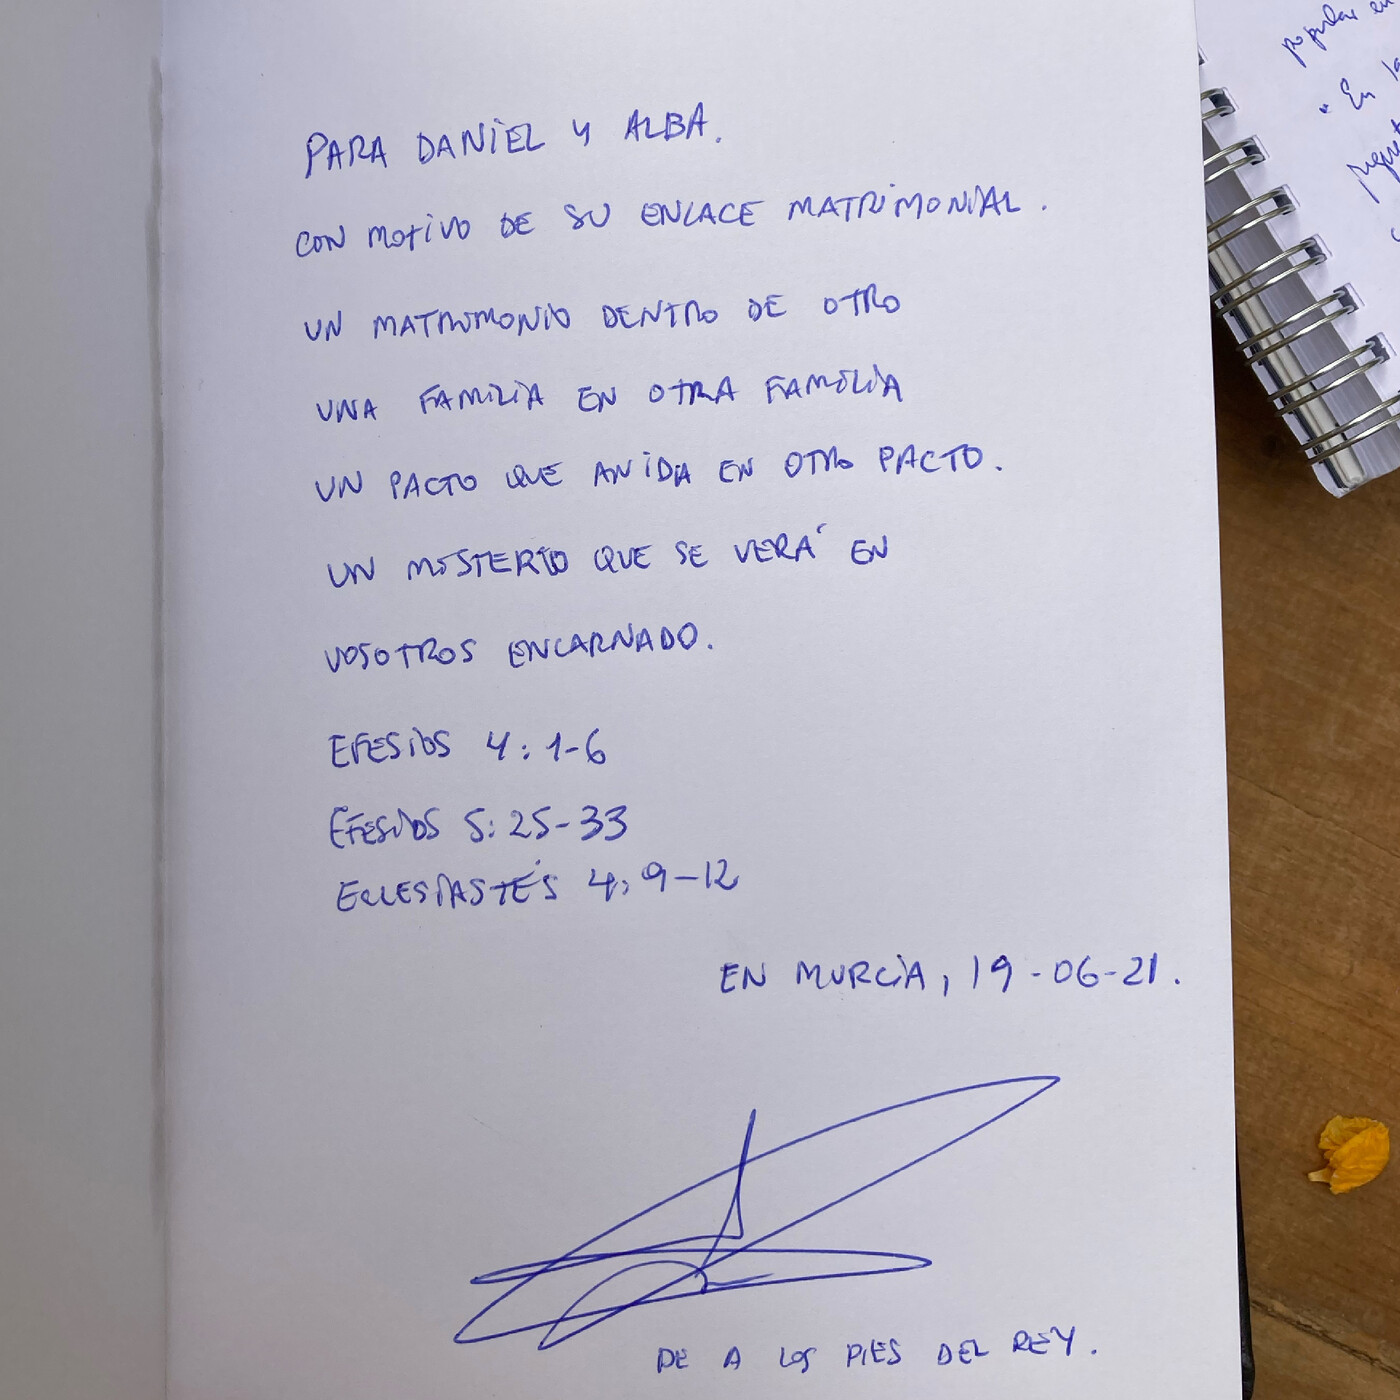 PARA DANIEL Y ALBA.
CON MOTIVO DE SU ENLACE MATRIMONIAL.
UN MATRIMONIO DENTRO DE OTRO
UNA FAMILIA EN OTRA FAMILIA
UN PACTO QUE ANIDA EN OTRO PACTO.
UN MISTERIO QUE SE VERÁ EN
VOSOTROS ENCARNADO.
EFESIOS 4:1-6
EFESIOS 5:25-33
ECLESIASTÉS 4:9-12
EN MURCIA, 19-06-21.
DE A LOS PIES DEL REY.
popular en
"En la